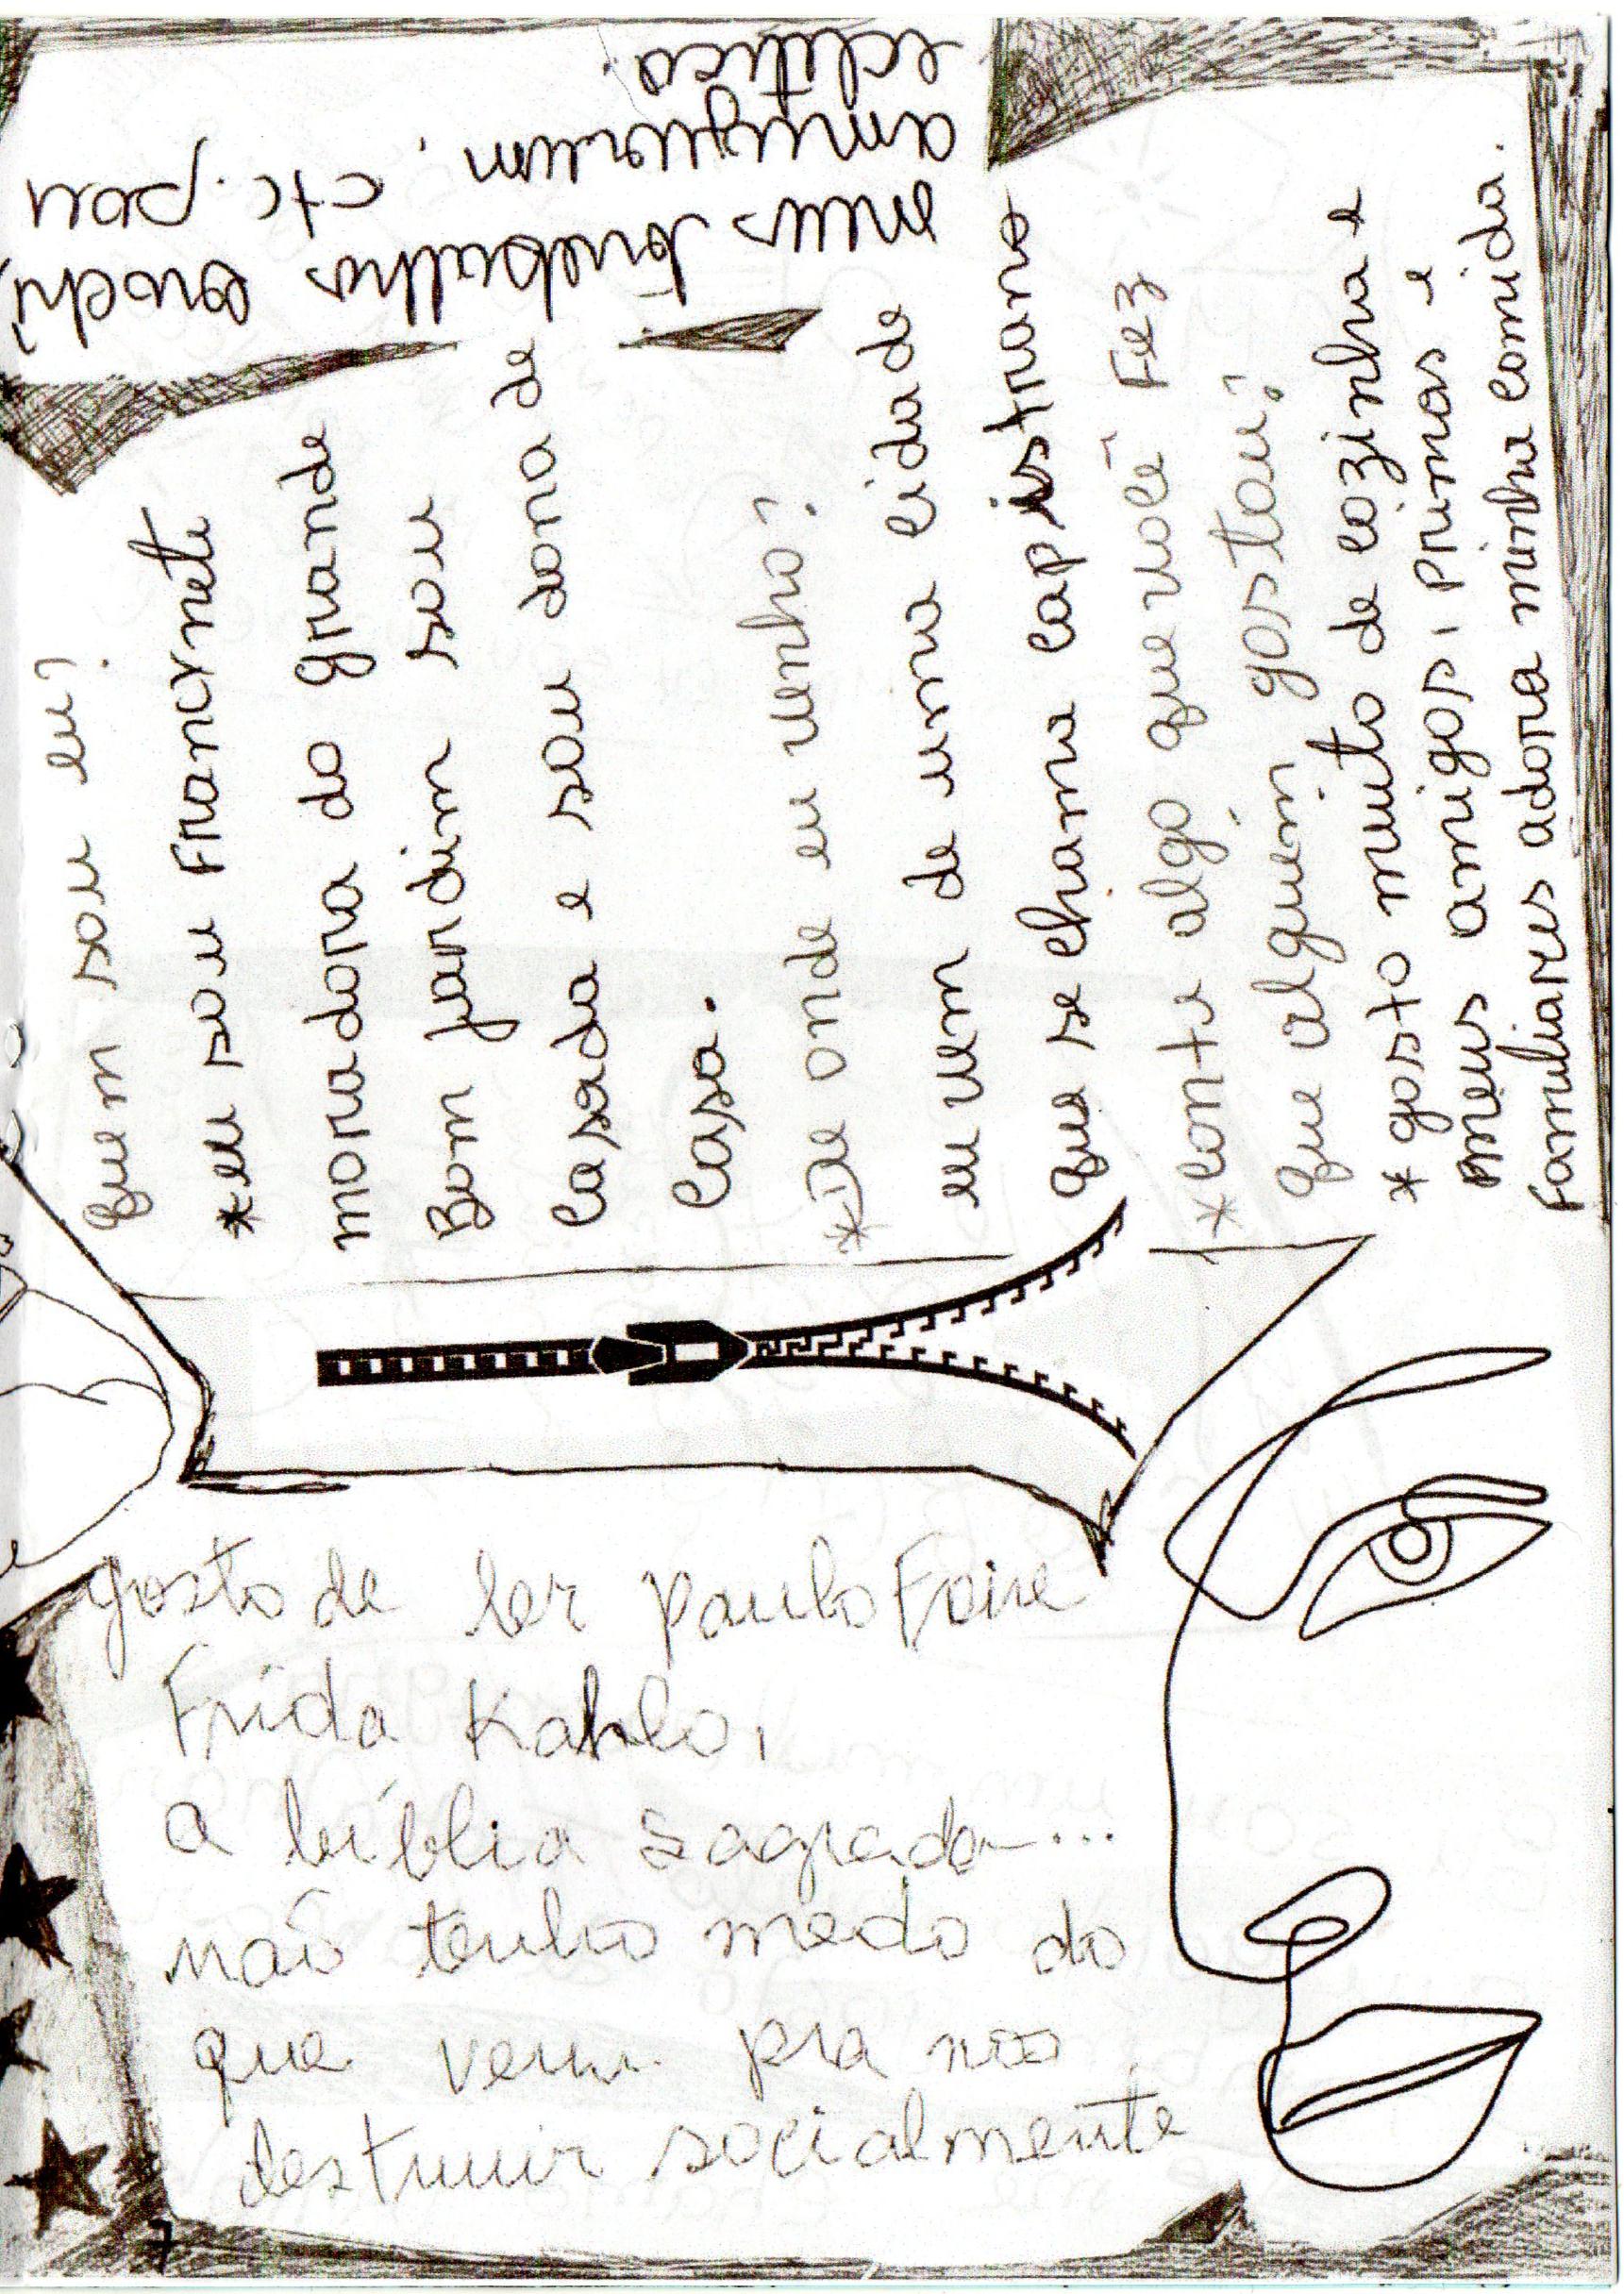 meus trabalhos croche,
amigurum, etc. sou
eclitica.
Quem sou eu?
*eu sou Francynete
moradora do grande
Bom jardim sou
Casada e sou dona de
Casa.
*De onde eu venho?
eu vem de uma cidade
que se chama capistrano
*conte algo que você Fez
que alguém gostou?
* gosto muito de cozinha e
meus amigos, primas e
Familiares adora minha comida.
gosto de ler paulo Feire
Frida Kahlo,
a bíblia sagrada...
não tenho medo do
que vem pra nos
destruir socialmente
7